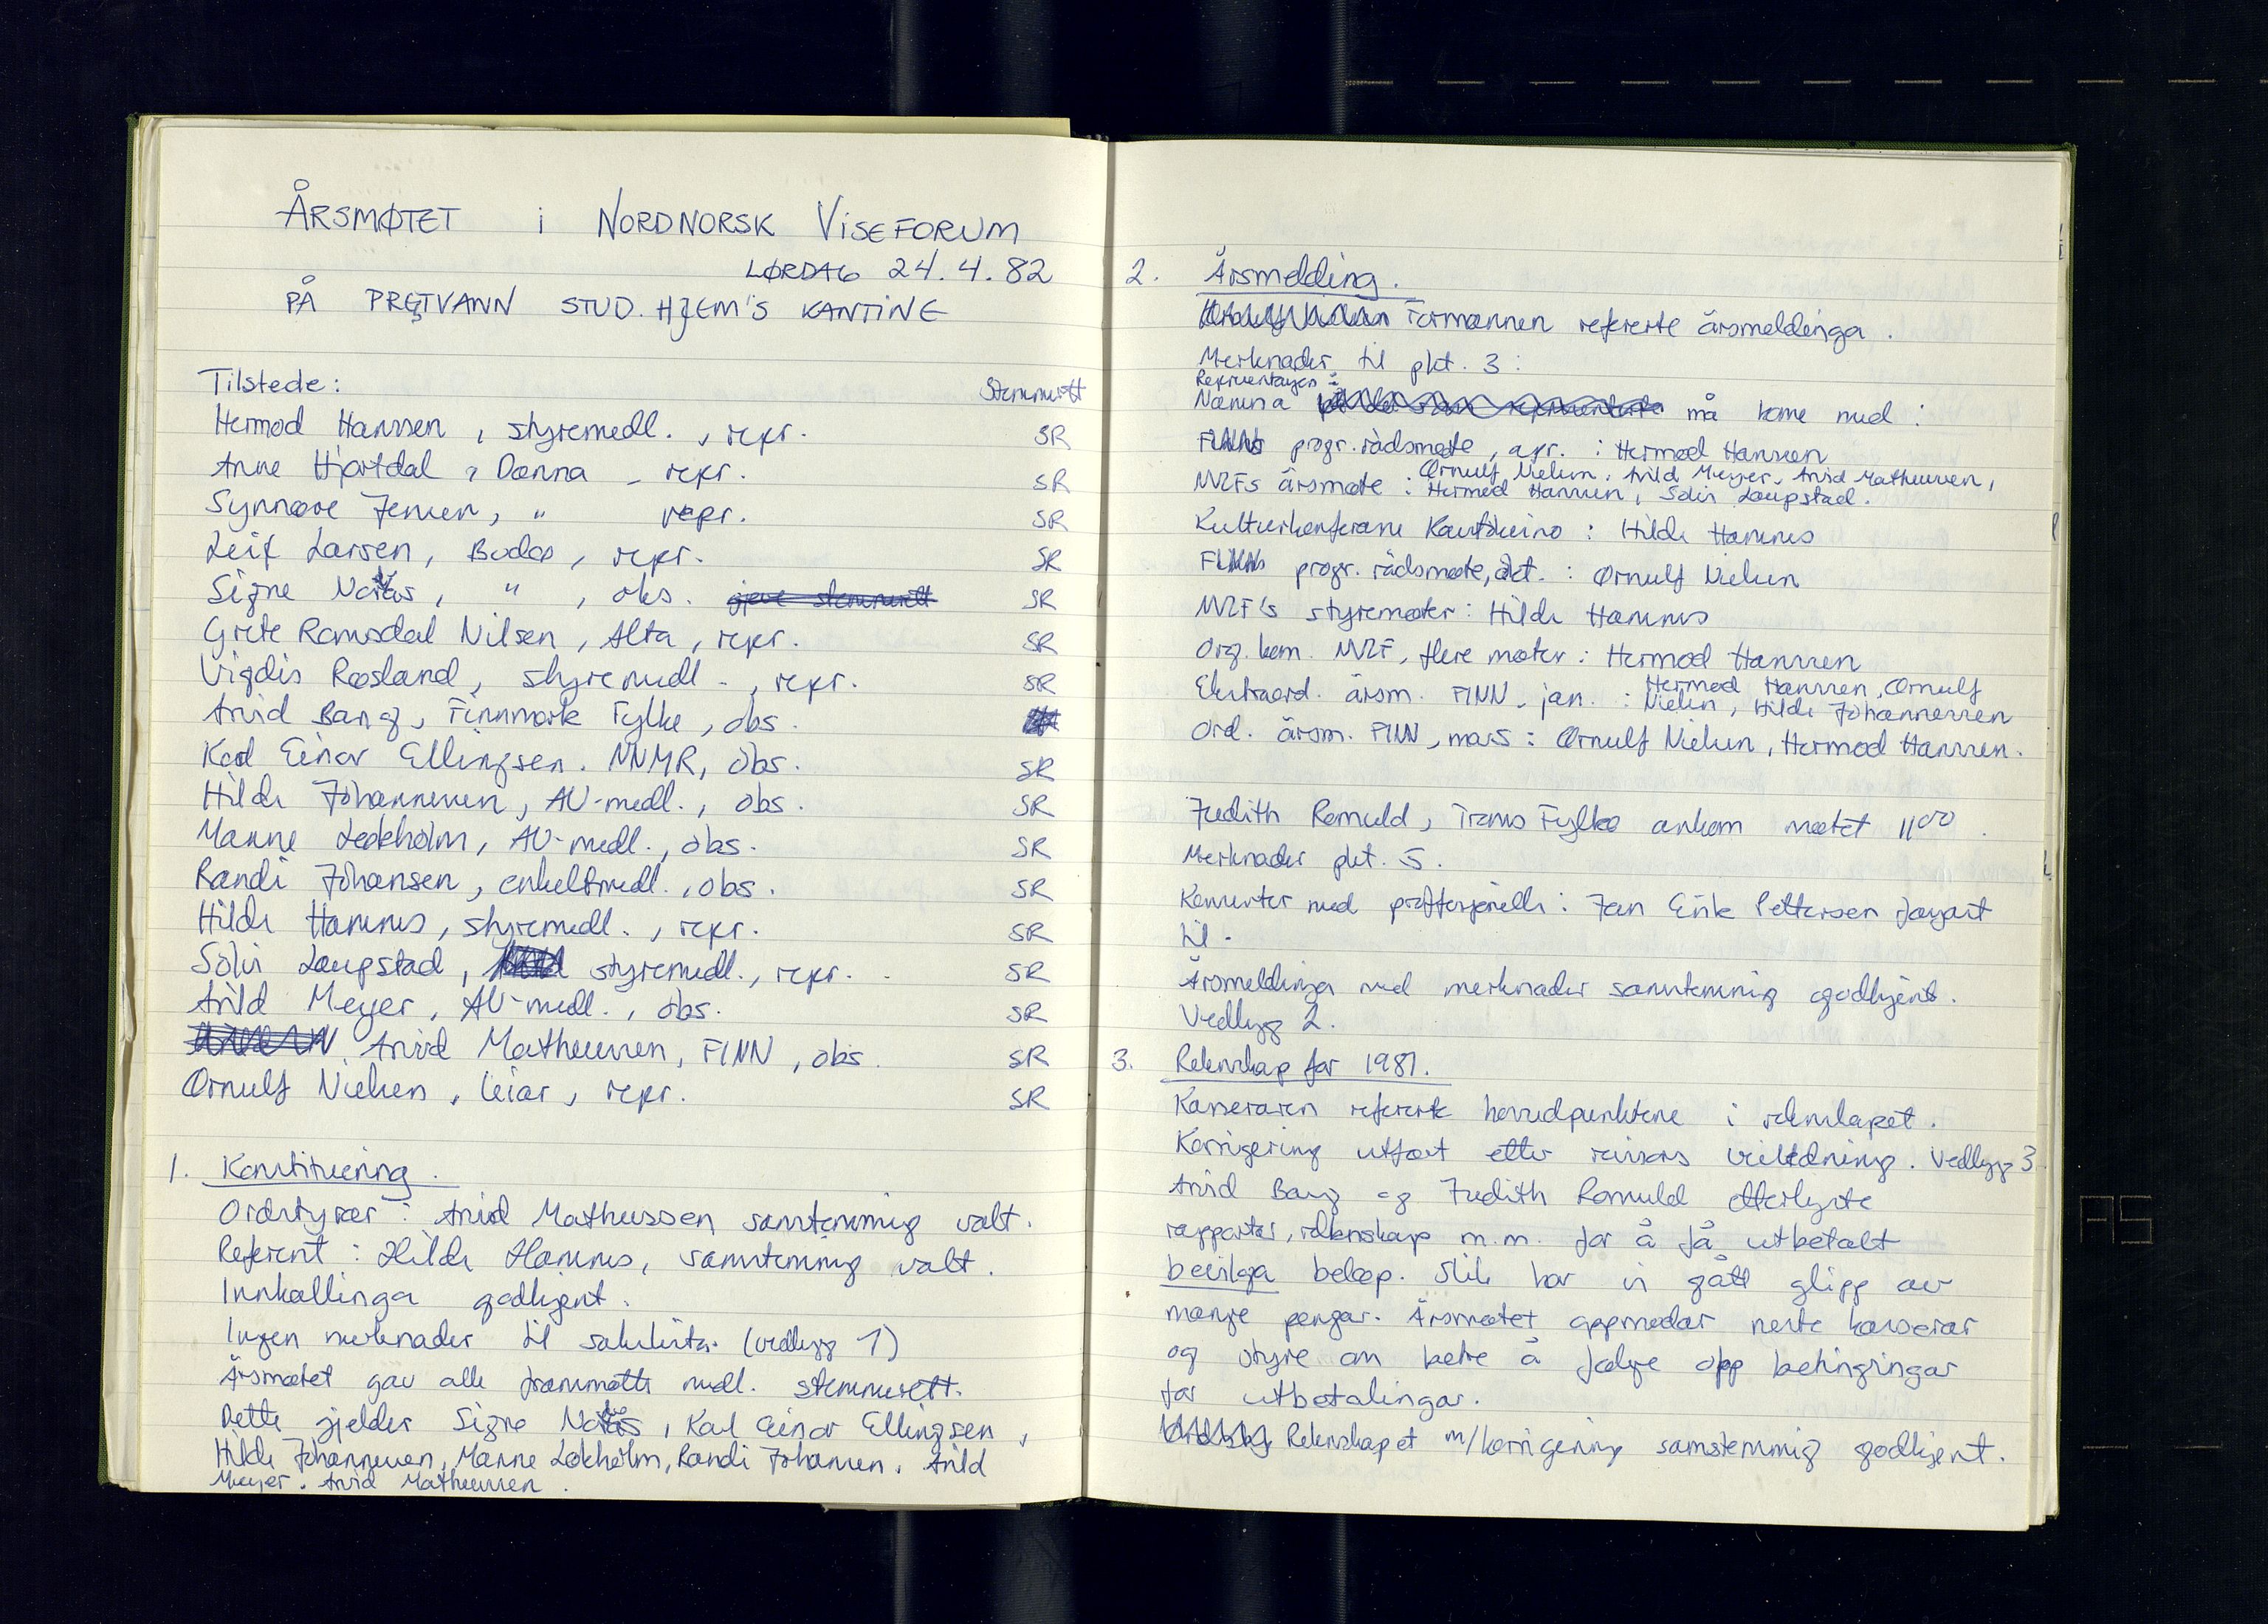 ÅRSMØTET i NORDNORSK VISEFORUM
LØRDAG 24.4.82
PÅ PRESTVANN STUD. HJEM'S KANTINE
Tilstede: Stemmerett
Hermod Hanssen, styremedl., repr. SR
Anne Hjortdal, Dønna, repr. SR
Synnøve Jensen, " repr. SR
Leif Larsen, Bodø, repr. SR
Signe , " , obs. gjeve stemmerett SR
Grete Ramsdal Nilsen, Alta, repr. SR
Vigdis Røsland, styremedl., repr. SR
Arvid Bang, Finnmark Fylke, obs.
Karl Einar Ellingsen. NNMR, obs. SR
Hilde Johannessen, AU-medl., obs. SR
Manne Leokholm, AU-medl., obs. SR
Randi Johansen, enkeltmedl., obs. SR
Hilde Hamnes, styremedl., repr. SR
Sølvi Laupstad, styremedl., repr. SR
Arild Meyer, AU-medl., obs. SR
Arvid Matheussen, FINN, obs. SR
Ørnulf Nielsen, leiar, repr. SR
1. Konstituering.
Ordstyrer: Arvid Matheussen samstemmig valt.
Referent: Hilde Hamnes, samstemmig valt.
Innkallinga godkjent.
Ingen merknader til saklista. (vedlegg 1)
Årsmøtet gav alle frammøtte medl. stemmerett.
Dette gjelder Signe , Karl Einar Ellingsen,
Hilde Johannessen, Manne Lokholm, Randi Johansen, Arild
Meyer. Arvid Matheussen.
2. Årsmelding.
Formannen refererte årsmeldinga.
Merknader til pkt. 3:
Representasjon:
Namna må kome med:
FINNs progr.rådsmøte, apr.: Hermod Hanssen
Ørnulf Nielsen, Arild Meyer, Arvid Matheussen,
NVFs årsmøte: Hermod Hanssen, Sølvi Laupstad.
Kulturkonferanse Kautokeino: Hilde Hamnes
FINNs progr.rådsmøte, okt.: Ørnulf Nielsen
NVF's styremøter: Hilde Hamnes
Org. kom. NVF, flere møter: Hermod Hanssen
Ekstraord. årsm. FINN, jan.: Hermod Hanssen, Ørnulf
Nielsen, Hilde Johannessen
Ord. årsm. FINN, mars: Ørnulf Nielsen, Hermod Hanssen.
Judith Romuld, Troms Fylke ankom møtet 11⁰⁰.
Merknader pkt. 5.
Konserter med proffesjonelle: Jan Erik Pettersen føyast
til.
Årsmeldinga med merknader samstemmig godkjent.
Vedlegg 2.
3. Rekneskap for 1981.
Kasseraren refererte hovudpunktene i rekneskapet.
Korrigering utført etter revisors veiledning. Vedlegg 3
Arvid Bang og Judith Romuld etterlyste
rapporter, rekneskap m.m. for å få utbetalt
bevilga beløp. Slik har vi gått glipp av
mange pengar. Årsmøtet oppmodar neste kasserar
og styre om betre å følge opp betingingar
for utbetalingar.
Rekneskapet m/korrigering samstemmig godkjent.